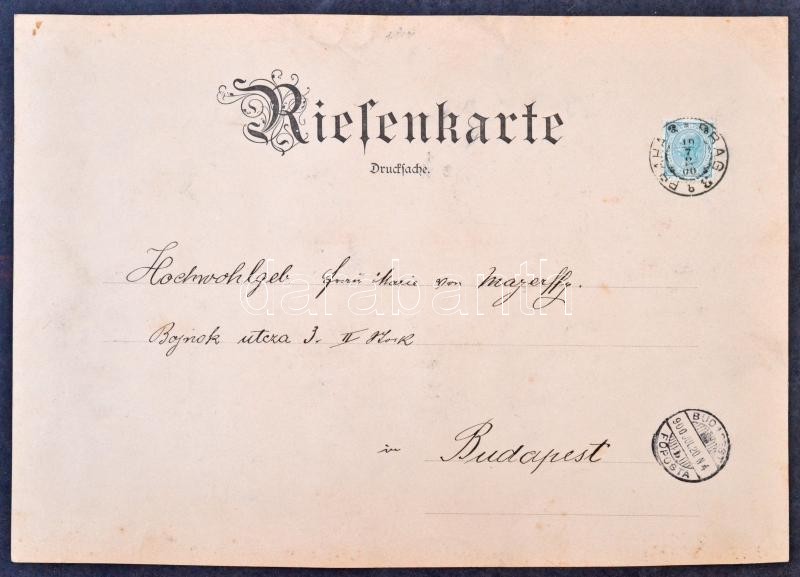 Riesenkarte
Drucksache.
PRAG 3 PRAHA
19
7
00
Hochwohlgeb Frau Marie von Mayerffy.
Bajnok utcza 3. II Stock
in Budapest
BUDAPEST
900 JUL 20 N4
FŐPOSTA
darabanth